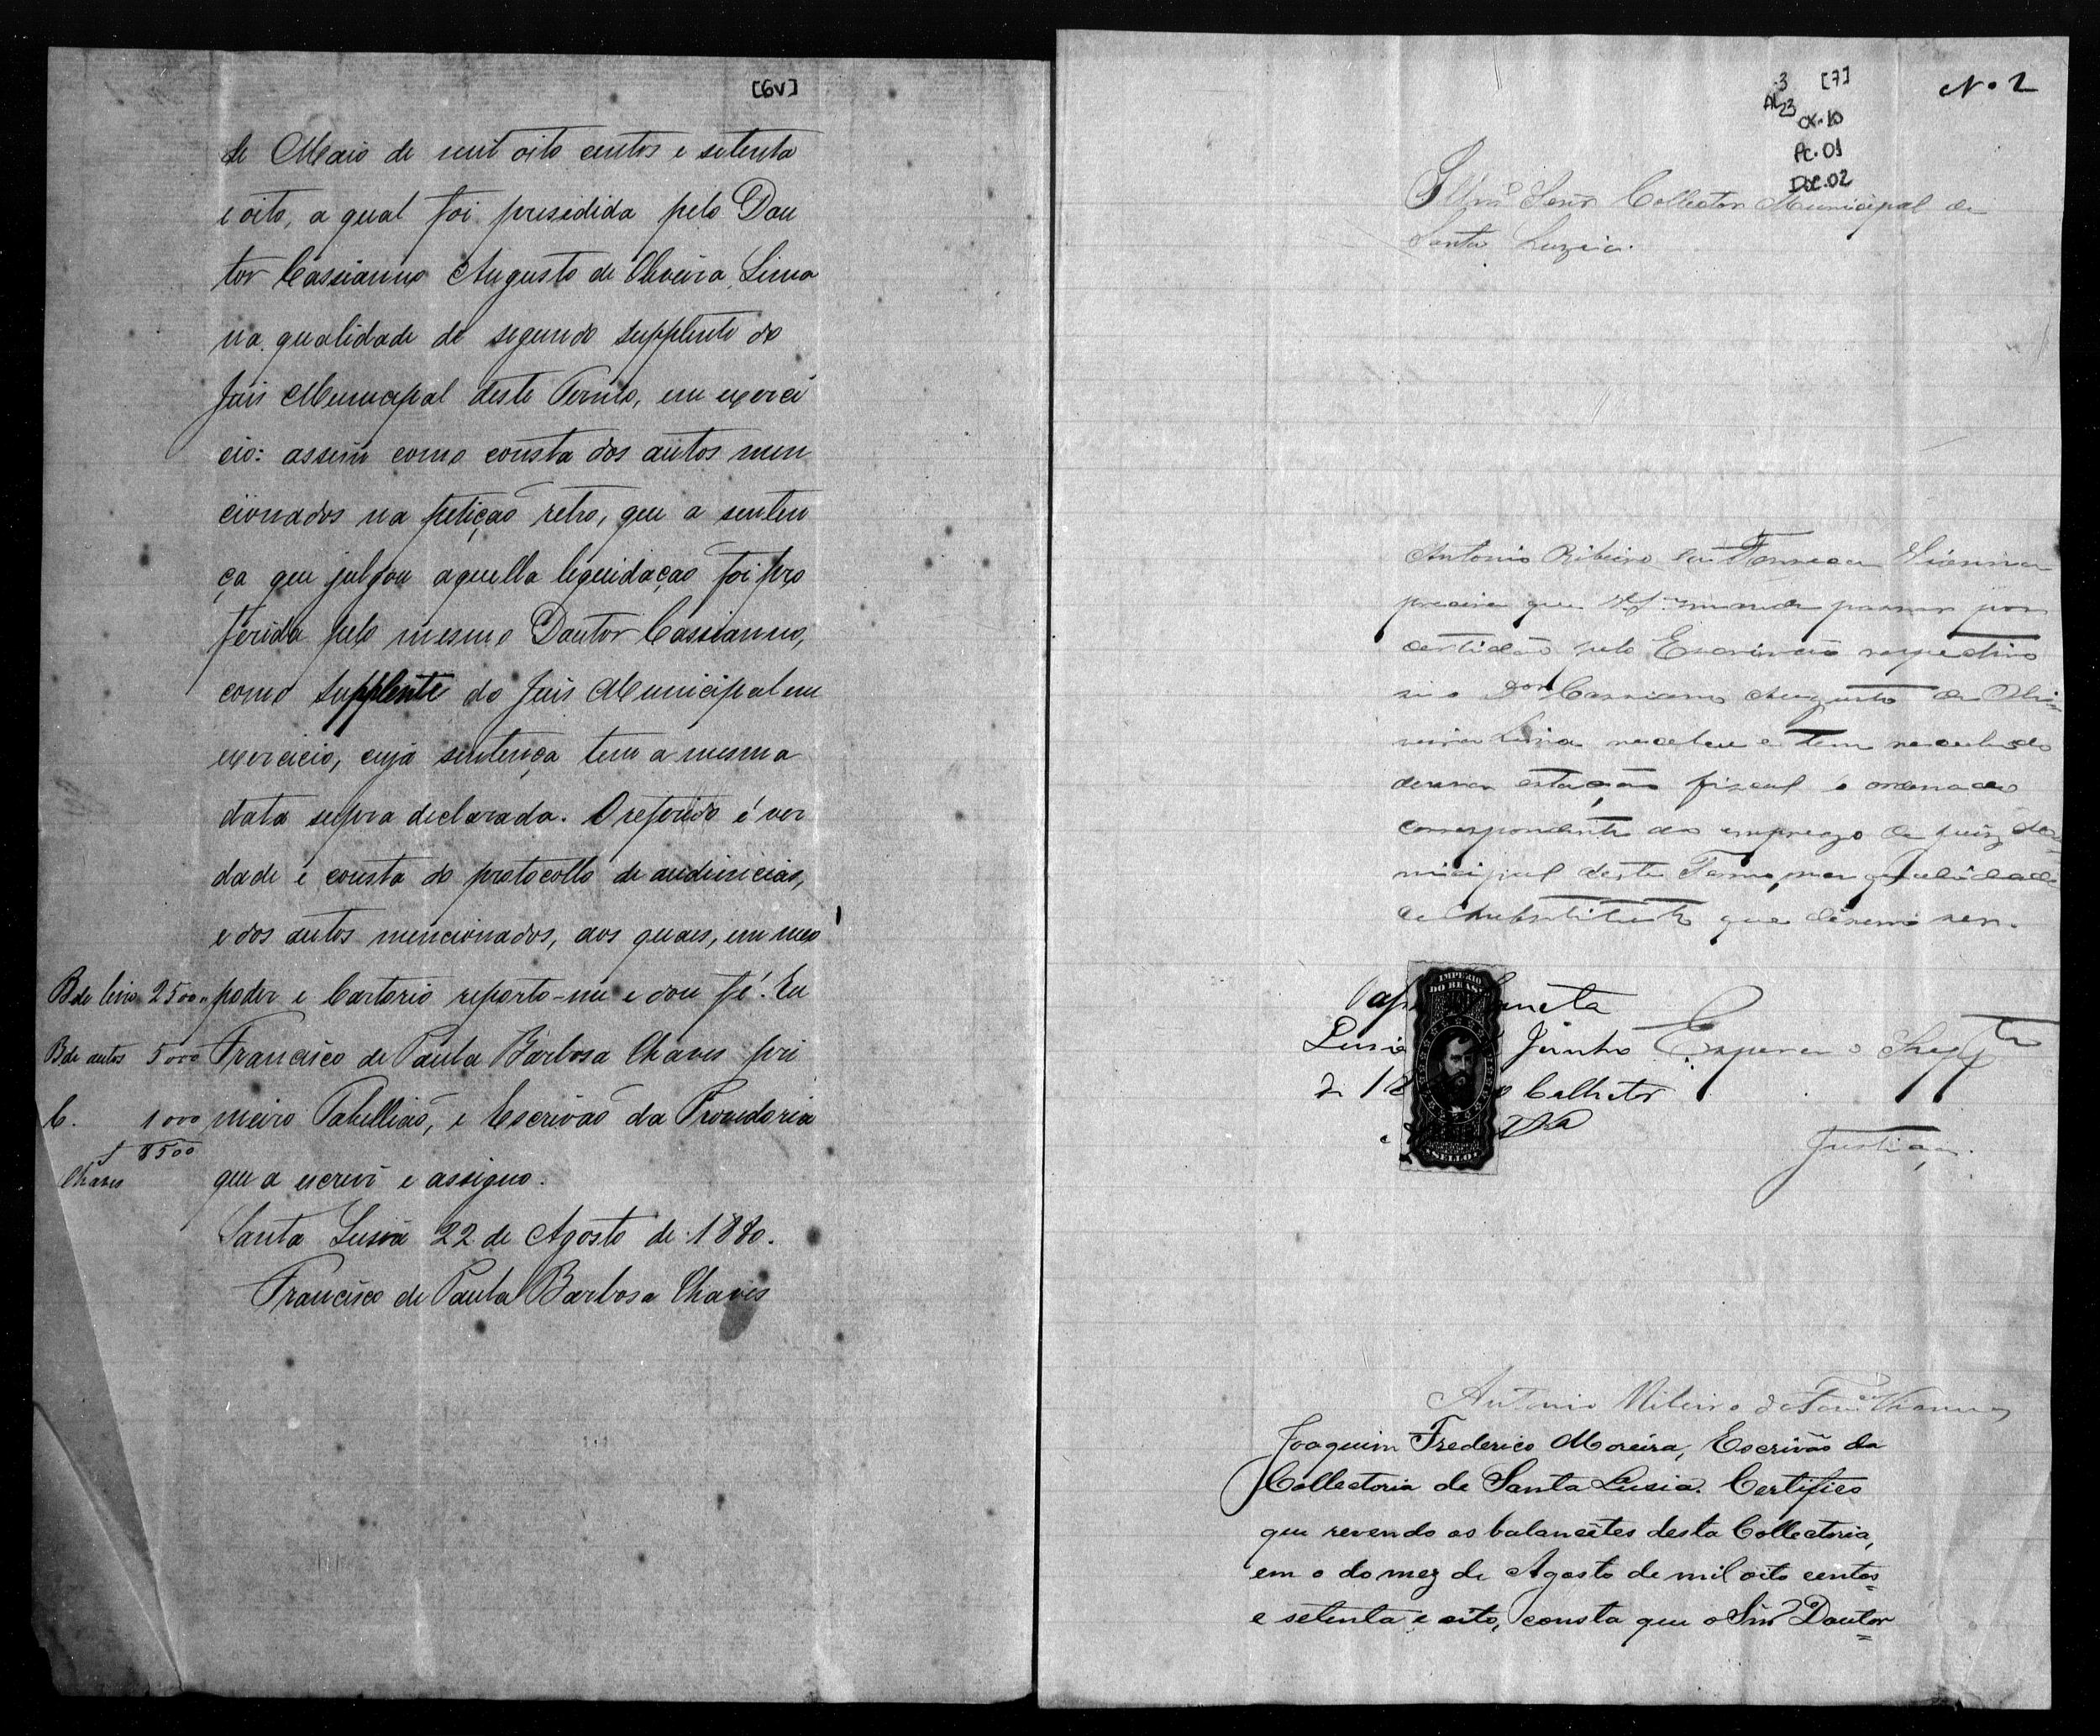 [6v]
de Maio de mil oito centos e setenta
e oito, a qual foi presidida pelo Dou
tor Cassianno Augusto de Oliveira Lima
na qualidade de segundo supplente do
Juis Municipal deste Termo, em exerci
cio: assim como consta dos autos men
cionados na petição retro, que a senten
ça que julgou aquella liquidação foi pro
ferida pelo mesmo Doutor Cassianno,
como supplente do Juis Municipal em
exercicio, cuja sentença tem a mesma
data supra declarada. O referido é ver
dade e consta do protocollo de audiencias,
e dos autos mencionados, aos quaes, em meo
B de livro 2500 poder e Cartorio reporto-me e dou fé. Eu
B de autos 5000 Francisco de Paula Barbosa Chaves pri
C. 1000 meiro Tabellião, e Escrivão da Provedoria
8500
Chaves que a escrevi e assigno.
Santa Lusia 22 de Agosto de 1880.
Francisco de Paula Barbosa Chaves
3 [7]
N. 2
CX. 10
Pc. 01
Doc. 02
Illmo Senr Collector Municipal de
Santa Luzia.
Antonio Ribeiro da Fonseca Vianna
precisa que V. S. mande passar por
certidão pelo Escrivão respectivo
si o Dor Cassiano Augusto de Oli
veira Lima recebeu e tem recebido
dessa estação fiscal o ordenado
correspondente ao emprego de juiz Mu
nicipal deste Termo, na qualidade
de substituto que
IMPERIO
DO BRASIL
SELLO
Lusia Junho Espera o Suppte
de 18 o Collector
Justiça.
Antonio Ribeiro da Fonca Vianna
Joaquim Frederico Moreira, Escrivão da
Collectoria de Santa Lusia. Certifico
que revendo os balancetes desta Collectoria,
em o do mez de Agosto de mil oito centos
e setenta e oito, consta que o Snr Doutor